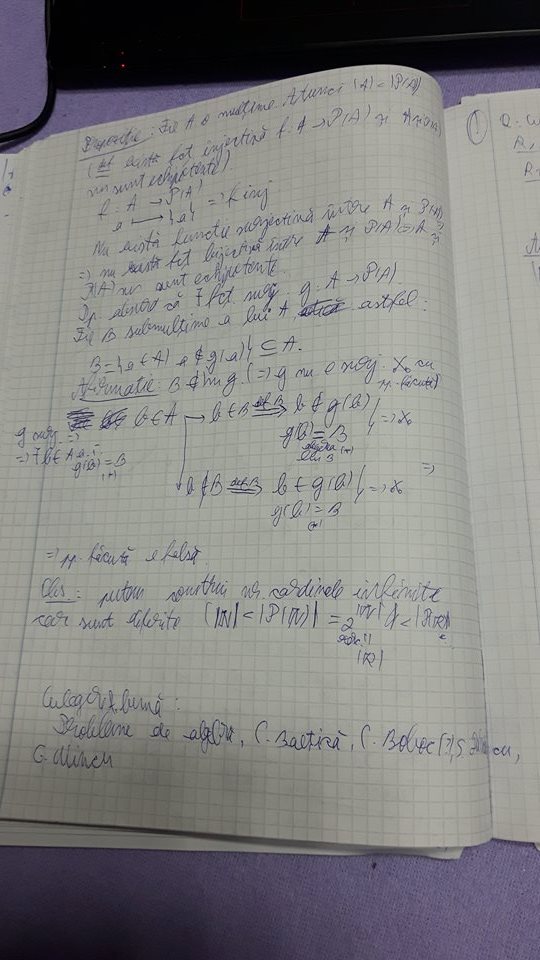 Propoziție: Fie A o mulțime. Atunci |A| < |P(A)|
(def există fct injectivă f: A → P(A) și A și P(A)
nu sunt echipotente)
f: A → P(A)
a ↦ {a} => f inj
Nu există funcție surjectivă între A și P(A) =>
=> nu există fct bijectivă între A și P(A) => A și
P(A) nu sunt echipotente.
Pp. absurd că ∃ fct surj. g: A → P(A)
Fie B submulțime a lui A, astfel:
B = {a ∈ A | a ∉ g(a)} ⊆ A.
Afirmație: B ∉ Im g. (=> g nu e surj. cu
pp. făcută)
g surj. =>
=> ∃ b ∈ A a.î.
g(b) = B
(*)
b ∈ A → b ∈ B def B b ∉ g(b)
g(b) = B
(*)
=>
b ∉ B def B b ∈ g(b)
g(b) = B
(*)
=>
=> pp. făcută e falsă.
Obs.: putem construi nr. cardinale infinite
car sunt diferite (|N| < |P(N)| = 2^|N| < |P(R)|
|R|
Culegere bună:
Probleme de algebră, C. Băețică, C. Boboc (?), S.
G. Mincu